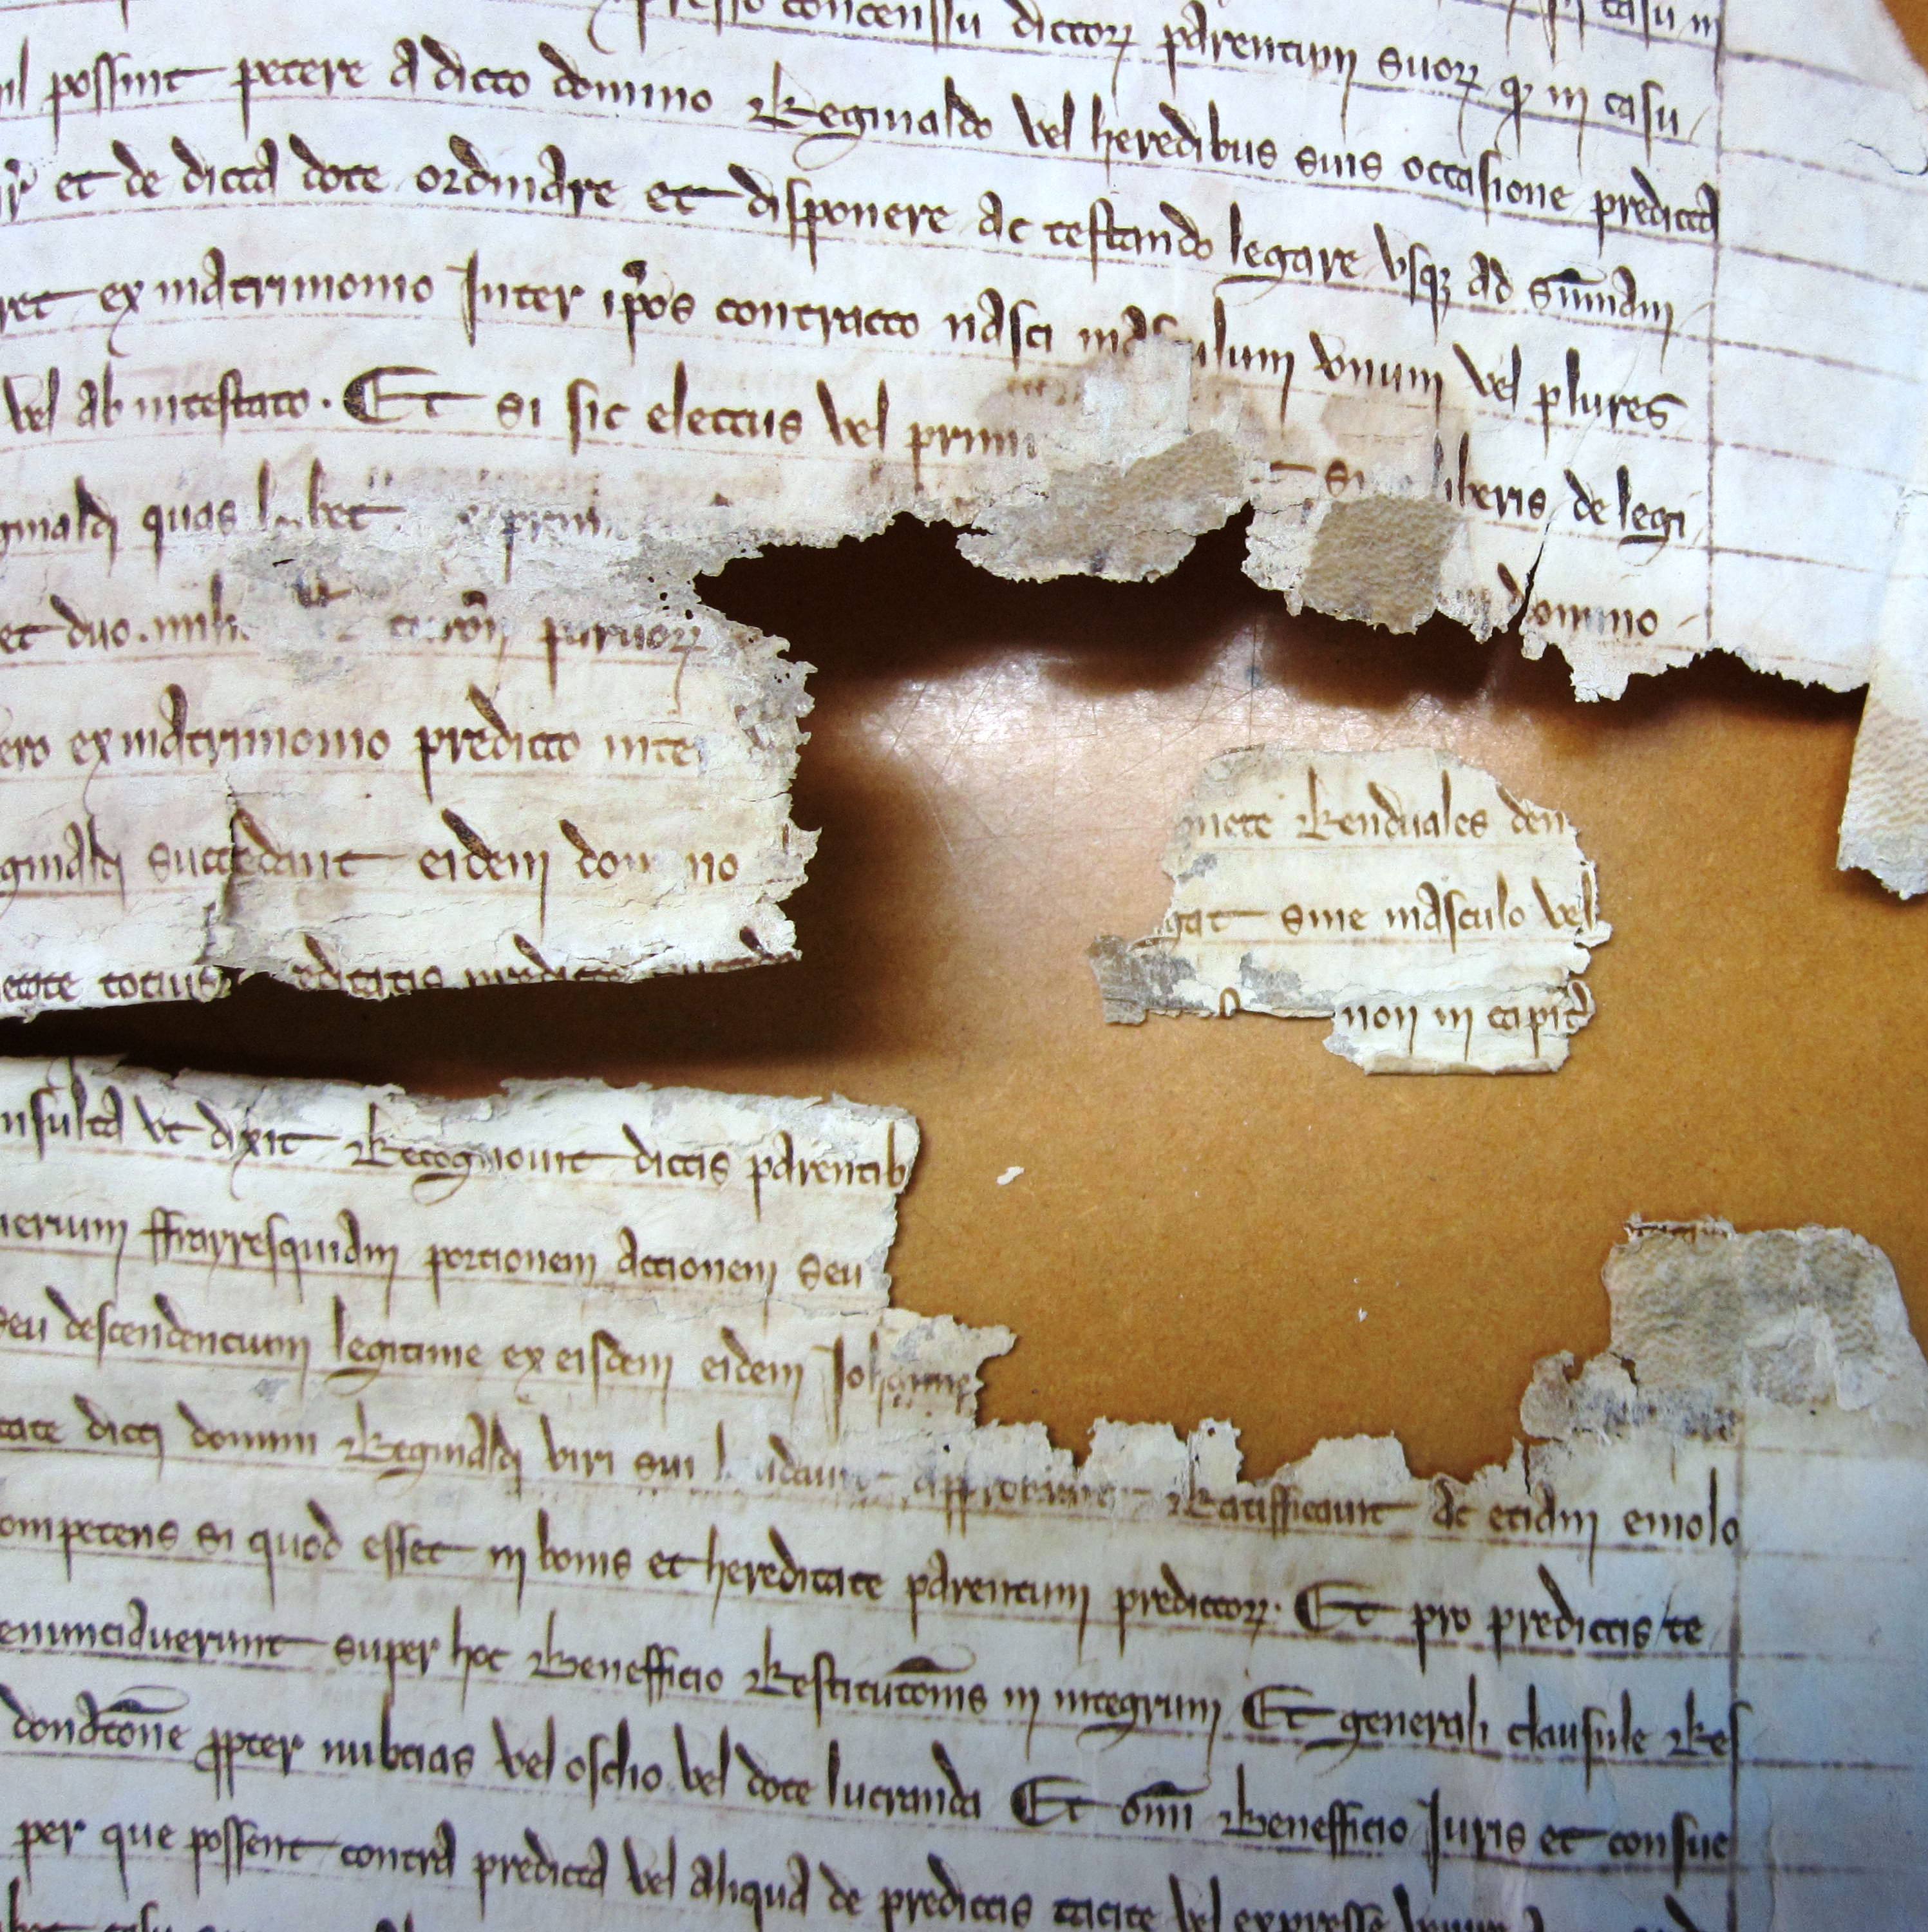 concenssu dictoꝝ parentum suoꝝ ꝙ in casu
possint petere a dicto domino Reginaldo vel heredibus suis occasione predicta
et de dicta dote ordinare et disponere ac testando legare vsqꝫ ad sūmam
ex matrimonio Inter ip̄os contracto nasci masculum vnum vel plures
vel ab intestato. Et si sic electus vel prim liberis de legi
ginaldi quas domino
et duo paruoꝝ
ero ex matrimonio predicto inte
ginaldi succedant eidem domino
nete Renduales den
gat sine masculo vel
non in capit
etate totius editatis predicte
nsulta vt dixit Recognouit dictis parentib
nerium ffrayresquiam portionem actionem seu
seu descendentium legitime ex eisdem eidem Johanne
tate dicti domini Reginaldi viri sui approbauit Ratifficauit ac etiam emolo
ompetens si quod esset in bonis et hereditate parentum predictoꝝ. Et pro predictis te
enunciauerunt super hoc Benefficio Restitucōnis in integrum Et generali clausule Res
donacōne ꝓpter nubcias vel osclio vel dote lucranda Et om̄i Benefficio Iuris et consue
per que possent contra predicta vel aliqua de predictis tacite vel expresse